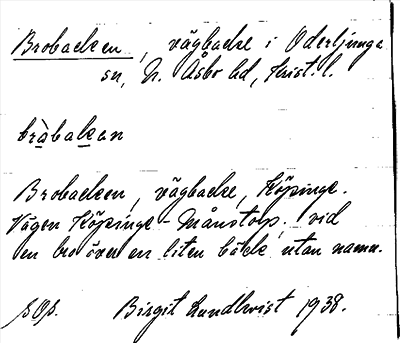 Brobacken, vägbacke i Oderljunga
sn, N. Åsbo hd, Krist. l.
bràbakan
Brobacken, vägbacke, Köpinge.
Vägen Köpinge - Månstorp, vid
en bro över en liten bäck utan namn.
Birgit Lundkvist 1938.